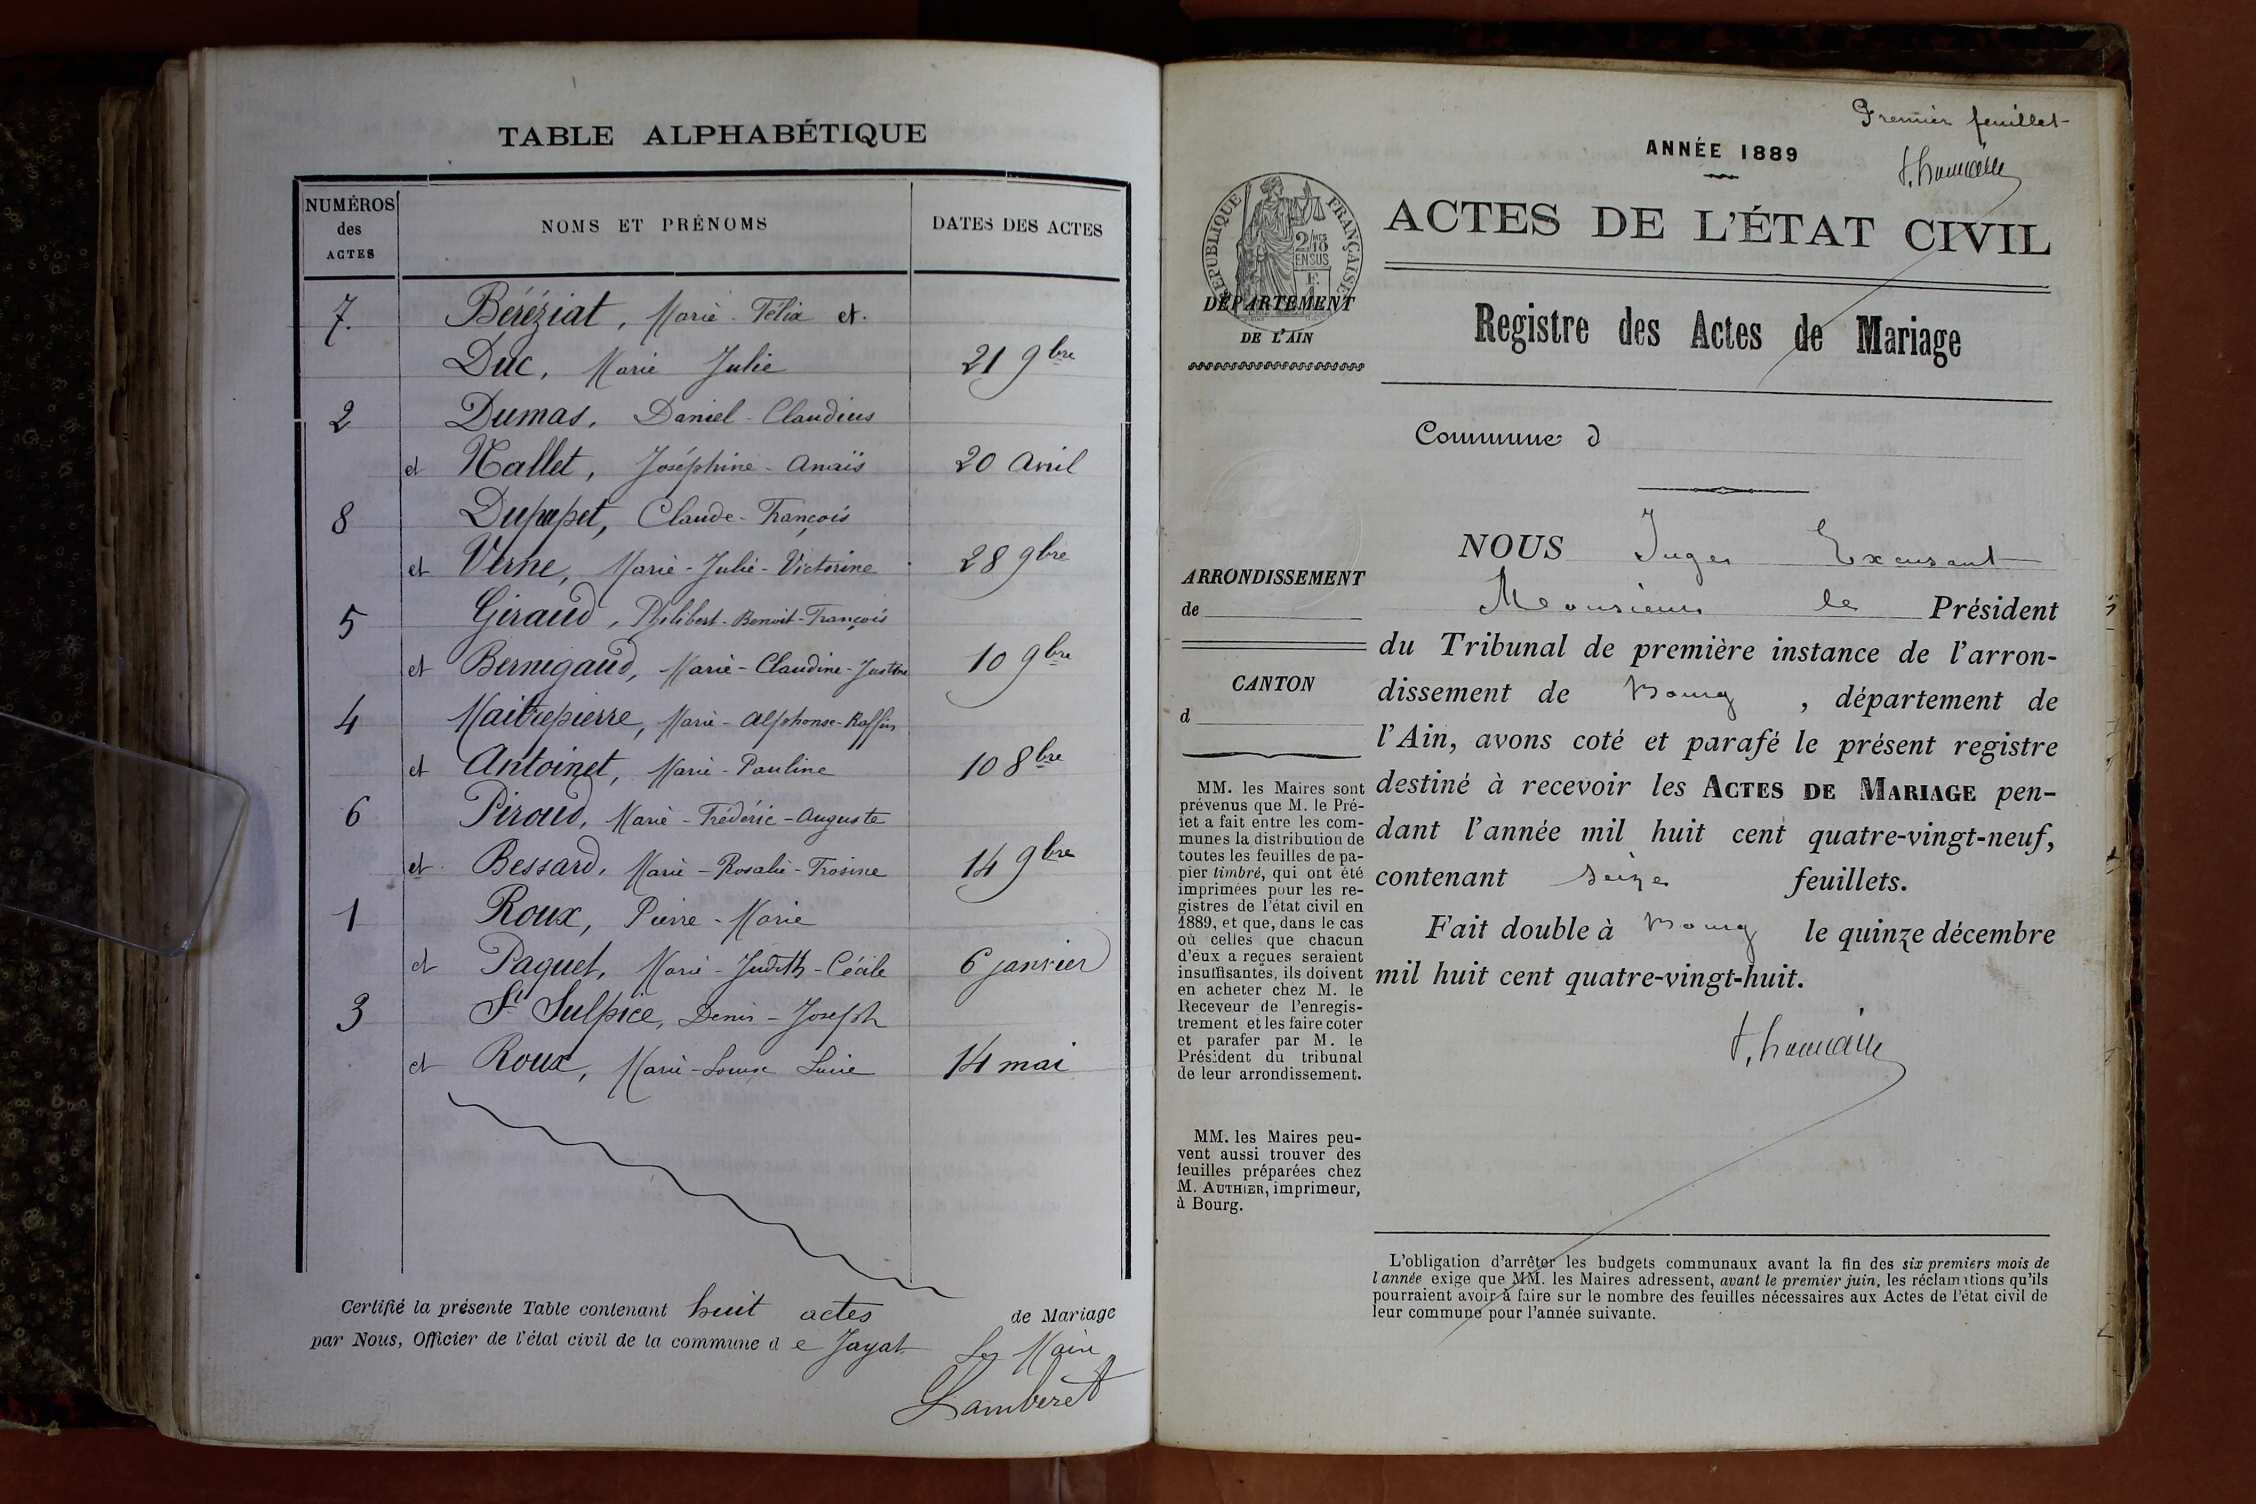 TABLE ALPHABÉTIQUE
NUMÉROS
des
ACTES
NOMS ET PRÉNOMS
DATES DES ACTES
7. Béréziat, Marie-Félix et.
Duc, Marie Julie 21 9bre
2 Dumas, Daniel-Claudius
et Nallet, Joséphine-Anaïs 20 Avril
8 Dupupet, Claude-François
et Verne, Marie-Julie-Victorine 28 9bre
5 Giraud, Philibert-Benoit-François
et Bernigaud, Marie-Claudine-Justine 10 9bre
4 Maitrepierre, Marie-Alphonse-Raffin
et Antoinet, Marie-Pauline 10 8bre
6 Piroud, Marie-Frédéric-Auguste
et. Bessard, Marie-Rosalie-Frosine 14 9bre
1 Roux, Pierre-Marie
et Paquet, Marie-Judith-Cécile 6 janvier
3 St Sulpice, Denis-Joseph
et Roux, Marie-Louise Lucie 14 mai
Certifié la présente Table contenant huit actes de Mariage
par Nous, Officier de l'état civil de la commune d e Jayat Le Maire
Lamberet
Premier feuillet
ANNÉE 1889
RÉPUBLIQUE FRANÇAISE
2/MES
10
EN SUS
ACTES DE L'ÉTAT CIVIL
DÉPARTEMENT
DE L'AIN
Registre des Actes de Mariage
Commune d
NOUS Juge Excusant
Monsieur le Président
du Tribunal de première instance de l'arron-
dissement de Bourg, département de
l'Ain, avons coté et parafé le présent registre
destiné à recevoir les ACTES DE MARIAGE pen-
dant l'année mil huit cent quatre-vingt-neuf,
contenant seize feuillets.
Fait double à Bourg le quinze décembre
mil huit cent quatre-vingt-huit.
ARRONDISSEMENT
de
CANTON
d
MM. les Maires sont
prévenus que M. le Pré-
fet a fait entre les com-
munes la distribution de
toutes les feuilles de pa-
pier timbré, qui ont été
imprimées pour les re-
gistres de l'état civil en
1889, et que, dans le cas
où celles que chacun
d'eux a reçues seraient
insuffisantes, ils doivent
en acheter chez M. le
Receveur de l'enregis-
trement et les faire coter
et parafer par M. le
Président du tribunal
de leur arrondissement.
MM. les Maires peu-
vent aussi trouver des
feuilles préparées chez
M. AUTHIER, imprimeur,
à Bourg.
L'obligation d'arrêter les budgets communaux avant la fin des six premiers mois de
l'année exige que MM. les Maires adressent, avant le premier juin, les réclamations qu'ils
pourraient avoir à faire sur le nombre des feuilles nécessaires aux Actes de l'état civil de
leur commune pour l'année suivante.